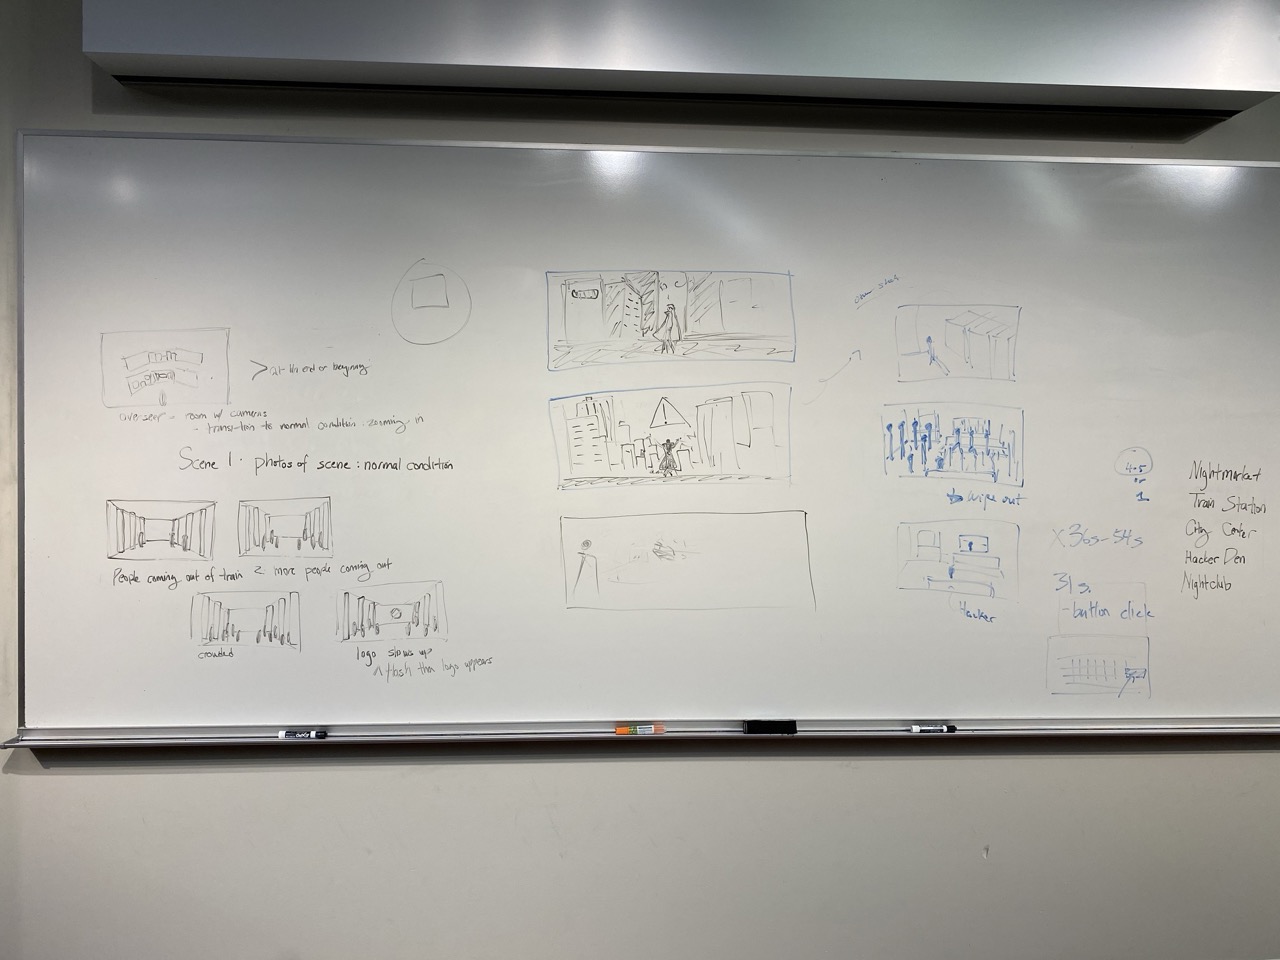 > at the end or beginning
overseer - room w/ cameras
- transition to normal condition: zooming in
Scene 1 · photos of scene : normal condition
People coming out of train
2 more people coming out
crowded
logo shows up
^ flash then logo appears
Wipe out
Hacker
4.5
or
1
x36s-54s
31s.
- button click
Nightmarket
Train Station
City Center
Hacker Den
Nightclub